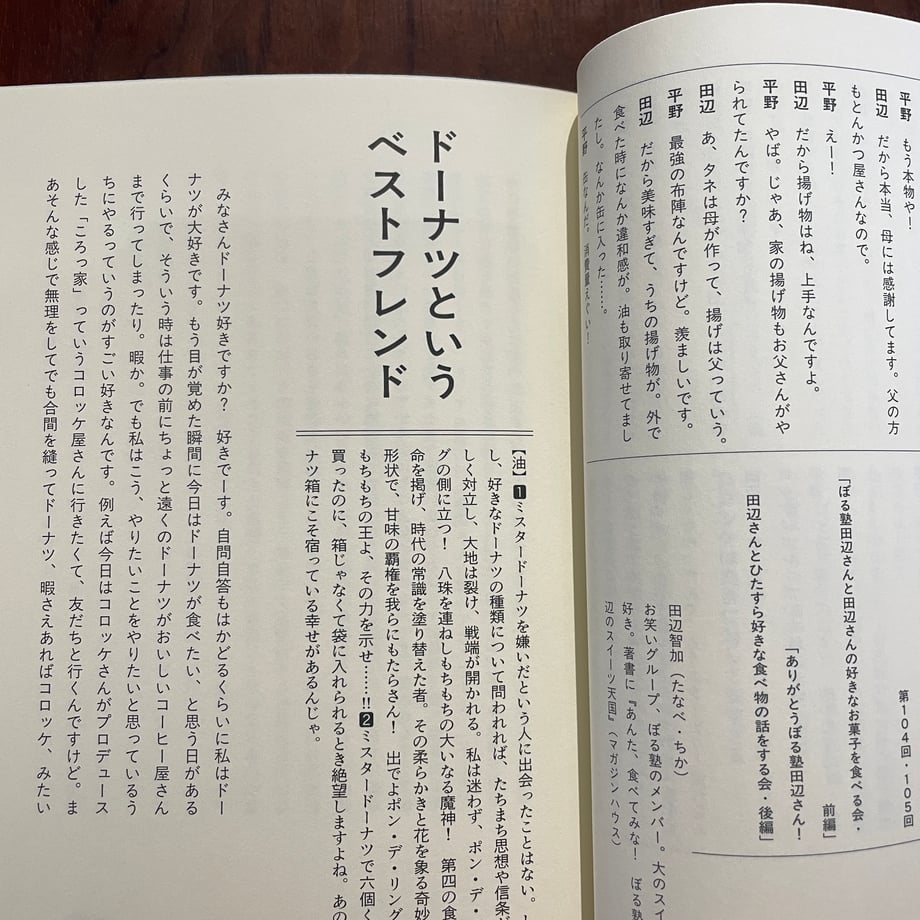 平野　もう本物や！
田辺　だから本当、母には感謝してます。父の方
もとんかつ屋さんなので。
平野　えー！
田辺　だから揚げ物はね、上手なんですよ。
平野　やば。じゃあ、家の揚げ物もお父さんがや
られてたんですか？
田辺　あ、タネは母が作って、揚げは父っていう。
平野　最強の布陣なんですけど。羨ましいです。
田辺　だから美味すぎて、うちの揚げ物が。外で
食べた時になんか違和感が。油も取り寄せてまし
たし。なんか缶に入った……。
平野　缶なんだ。消費量えぐい！
第104回・105回
「ぼる塾田辺さんと田辺さんの好きなお菓子を食べる会・
前編」
「ありがとうぼる塾田辺さん！
田辺さんとひたすら好きな食べ物の話をする会・後編」
田辺智加（たなべ・ちか）
お笑いグループ、ぼる塾のメンバー。大のスイ
好き。著書に『あんた、食べてみな！　ぼる塾
辺のスイーツ天国』（マガジンハウス）
ドーナツという
ベストフレンド
【油】❶ミスタードーナツを嫌いだという人に出会ったことはない。
し、好きなドーナツの種類について問われれば、たちまち思想や信条が
しく対立し、大地は裂け、戦端が開かれる。私は迷わず、ポン・デ・
グの側に立つ！　八珠を連ねしもちもちの大いなる魔神！　第四の食
命を掲げ、時代の常識を塗り替えた者。その柔らかきと花を象る奇妙
形状で、甘味の覇権を我らにもたらさん！　出でよポン・デ・リング
もちもちの王よ、その力を示せ……!!❷ミスタードーナツで六個く
買ったのに、箱じゃなくて袋に入れられるとき絶望しますよね。あの
ナツ箱にこそ宿っている幸せがあるんじゃ。
みなさんドーナツ好きですか？　好きでーす。自問自答もはかどるくらいに私はドー
ナツが大好きです。もう目が覚めた瞬間に今日はドーナツが食べたい、と思う日がある
くらいで、そういう時は仕事の前にちょっと遠くのドーナツがおいしいコーヒー屋さん
まで行ってしまったり。暇か。でも私はこう、やりたいことをやりたいと思っているう
ちにやるっていうのがすごい好きなんです。例えば今日はコロッケさんがプロデュース
した「ころっ家」っていうコロッケ屋さんに行きたくて、友だちと行くんですけど。ま
あそんな感じで無理をしてでも合間を縫ってドーナツ、暇さえあればコロッケ、みたい